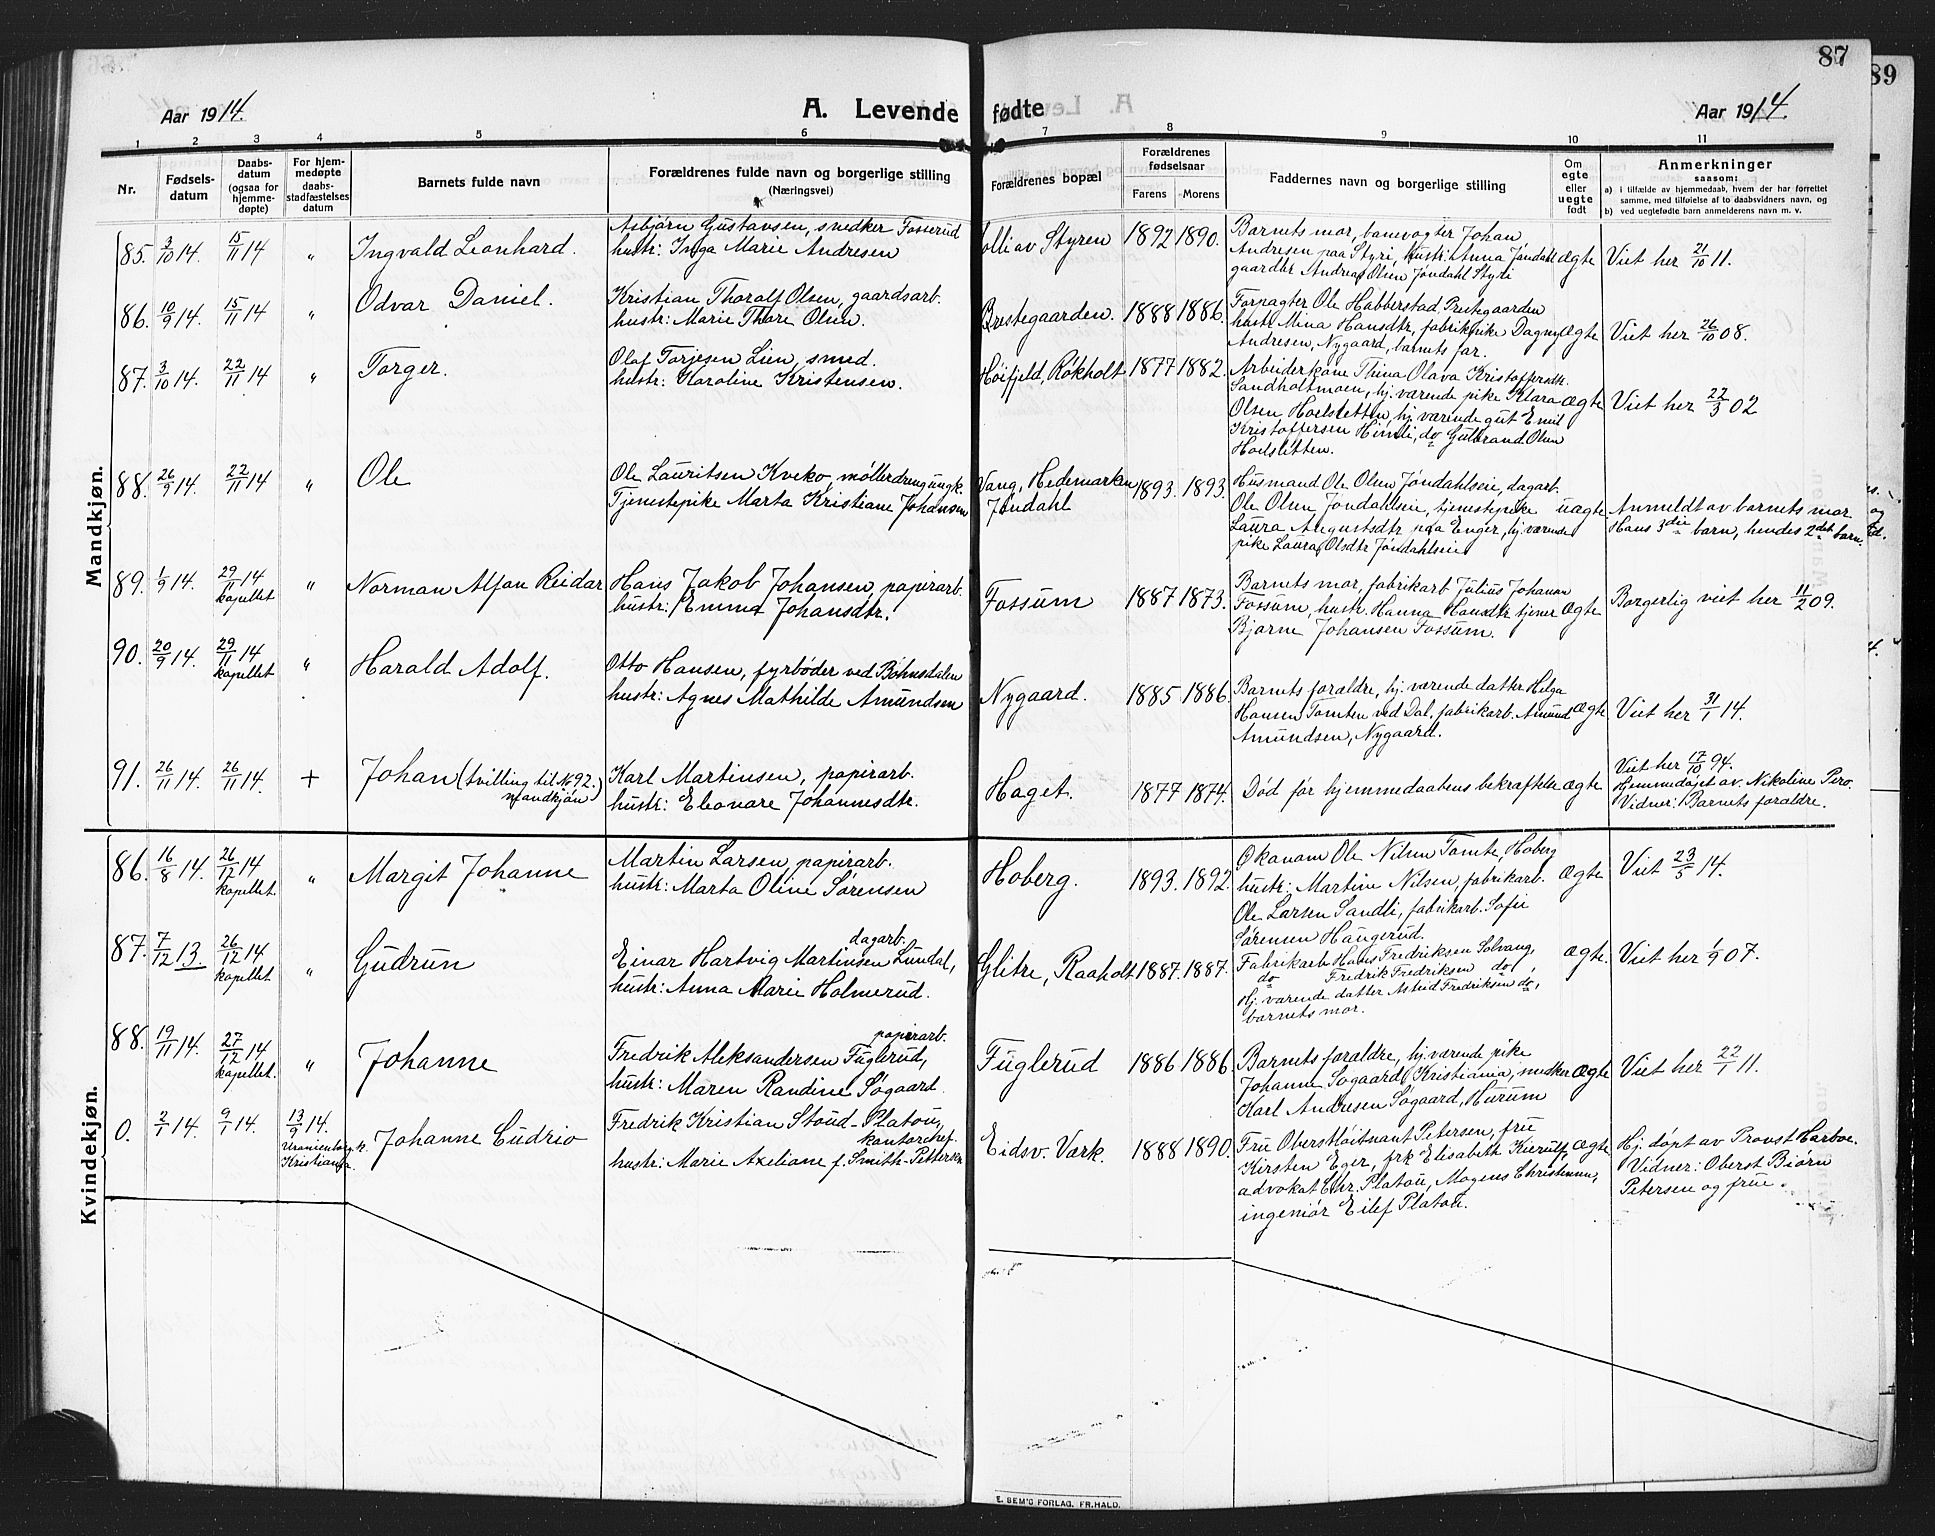 87
89
Aar 1914.
A. Levende fødte
Aar 1914.
1 2 3 4 5 6 7 8 9 10 11
Nr.
Fødsels-
datum
Daabs-
datum
(ogsaa for
hjemme-
døpte)
For hjem-
medøpte
daabs-
stadfæstelses
datum
Barnets fulde navn
Forældrenes fulde navn og borgerlige stilling
(Næringsvei)
Forældrenes bopæl
Forældrenes
fødselsaar
Farens Morens
Faddernes navn og borgerlige stilling
Om
egte
eller
uegte
født
Anmerkninger
saasom:
a) i tilfælde av hjemmedaab, hvem der har forrettet
samme, med tilføielse af to daabsvidners navn, og
b) ved uegtefødte barn anmelderens navn m. v.
Mandkjøn.
85. 3/10 14. 15/11 14 " Ingvald Leonhard.
Asbjørn Gustavsen, snedker Fosserud
hustr: Inga Marie Andresen
olli av Styren 1892 1890.
Barnets mor, banevogter Johan
Andresen paa Styri, hustr: Anna Jøndahl
gaardbr Andreas Olsen Jøndahl Styri
Ægte Viet her 21/10 11.
86. 10/9 14. 15/11 14 " Odvar Daniel.
Kristian Thoralf Olsen, gaardsarb.
hustr: Marie Thore Olsen.
Prestegaarden. 1888 1886.
Forpagter Ole Habberstad Prestegaarden
hustr Mina Hansdtr, fabrikpike Dagny
Andresen, Nygaard, barnets far.
Ægte Viet her 26/10 08.
87. 3/10 14. 22/11 14 " Torger.
Olaf Torjesen Lien, smed.
hustr: Karoline Kristensen.
Høifjeld, Røkholt 1877 1882.
Arbeiderkone Thina Olava Kristoffersdtr.
Sandholtmoen, hj. værende pike Klara
Olsen Hoelsletten, hj. værende gut Emil
Kristoffersen Himli, do Gulbrand Olsen
Hoelsletten.
Ægte Viet her 22/3 02
88. 26/9 14. 22/11 14 " Ole
Ole Lauritsen Kveko, møllerdreng ungk.
Tjenestepike Marta Kristiane Johansen
Vang, Hedemarken
Jøndahl
1893. 1893.
Husmand Ole Olsen Jøndahlseie, dagarb.
Ole Olsen Jøndahlseie, tjenestepike
Laura Augustsdtr paa Enger, hj. værende
pike Laura Olsdtr Jøndahlseie
uægte Anmeldt av barnets mor
Hans 3die barn, hendes 2det barn.
89. 1/9 14. 29/11 14 kapellet " Norman Alfan Reidar
Hans Jakob Johansen, papirarb.
hustr: Emma Johansdtr.
Fossum 1887 1873.
Barnets mor, fabrikarb Julius Johansen
Fossum, hustr. Hanna Hansdtr, tjener
Bjarne Johansen Fossum.
Ægte Borgerlig viet her 11/2 09.
90. 20/9 14. 29/11 14 kapellet " Harald Adolf.
Otto Hansen, fyrbøder ved Bøhnsdalen
hustr: Agnes Mathilde Amundsen
Nygaard. 1885 1886
Barnets forældre, hj. værende datter Helga
Hansen Tomten ved Dal, fabrikarb. Amund
Amundsen, Nygaard.
Ægte Viet her 31/1 14.
91. 26/11 14. 26/11 14. + Johan (tvilling til No 92.
mandkjøn)
Karl Martinsen, papirarb.
hustr: Eleonare Johannesdtr.
Haget. 1877 1874.
Død før hjemmedaabens bekræftelse Ægte
Viet her 17/10 94.
Hjemmedøpt av Nikoline Pero.
Vidner: Barnets forældre.
Kvindekjøn.
86. 16/8 14. 26/12 14 kapellet " Margit Johanne
Martin Larsen, papirarb.
hustr: Marta Oline Sørensen
Hoberg. 1893. 1892.
Økonom Ole Nilsen Tomte, Hoberg
hustr: Martine Nilsen, fabrikarb.
Ole Larsen Sandli, fabrikarb. Sofie
Sørensen Haugerud.
Ægte Viet 23/5 14.
87. 7/12 13. 26/12 14 kapellet " Gudrun
dagarb.
Einar Hartvig Martinsen Lundal,
hustr: Anna Marie Holmerud.
Glitre, Raaholt 1887. 1887.
Fabrikarb Hans Fredriksen Solvang,
do Fredrik Fredriksen do,
Hj. værende datter Astrid Fredriksen do,
barnets mor.
Ægte. Viet her 1/9 07.
88. 19/11 14. 27/12 14 kapellet. " Johanne
papirarb.
Fredrik Aleksandersen Fuglerud,
hustr: Maren Randine Søgaard.
Fuglerud 1886 1886
Barnets forældre, hj. værende pike
Johanne Søgaard, Kristiania, snedker
Karl Andresen Søgaard, Hurum
Ægte Viet her 22/1 11.
0. 2/1 14. 9/1 14. 13/9 14. Uranienborg k.
Kristiania
Johanne Cudrio
Fredrik Kristian Stoud-Platou,
kontorchef.
hustr: Marie Axeliane f. Smith-Petersen
Eidsv. Værk. 1888 1890.
Fru Oberstløitnant Petersen, frue
Kirsten Eger, frk Elisabeth Kierulf,
advokat Chr. Platou, Mogens Christensen,
ingeniør Eilef Platou.
Ægte Hj. døpt av Provst Harboe.
Vidner: Oberst Biørn
Petersen og frue.
E. SEM'S FORLAG, FR.HALD.